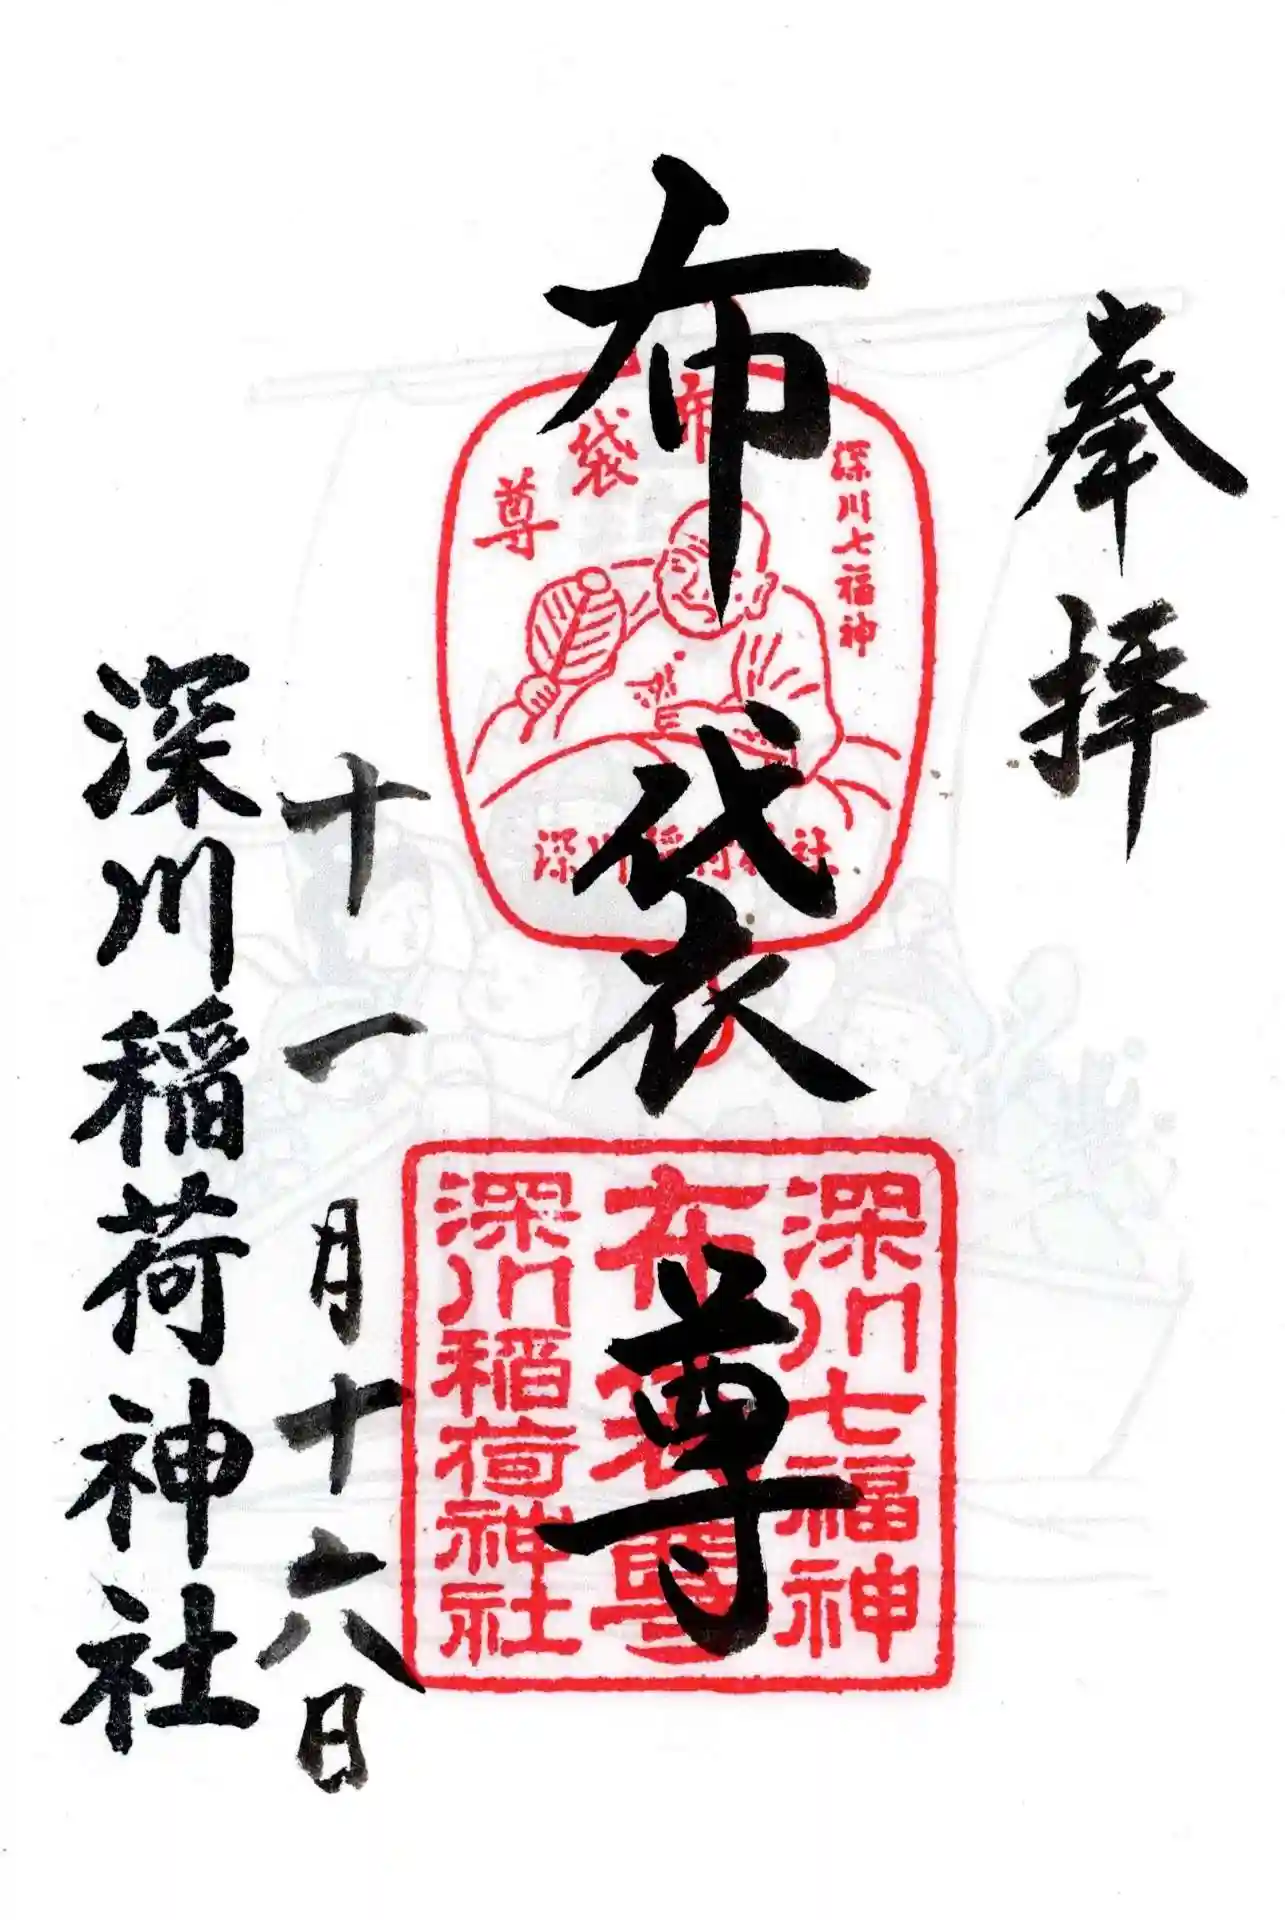 奉拝
布袋尊
十一月十六日
深川稲荷神社
深川七福神
布袋尊
深川稲荷神社
深川七福神
布袋尊
深川稲荷神社